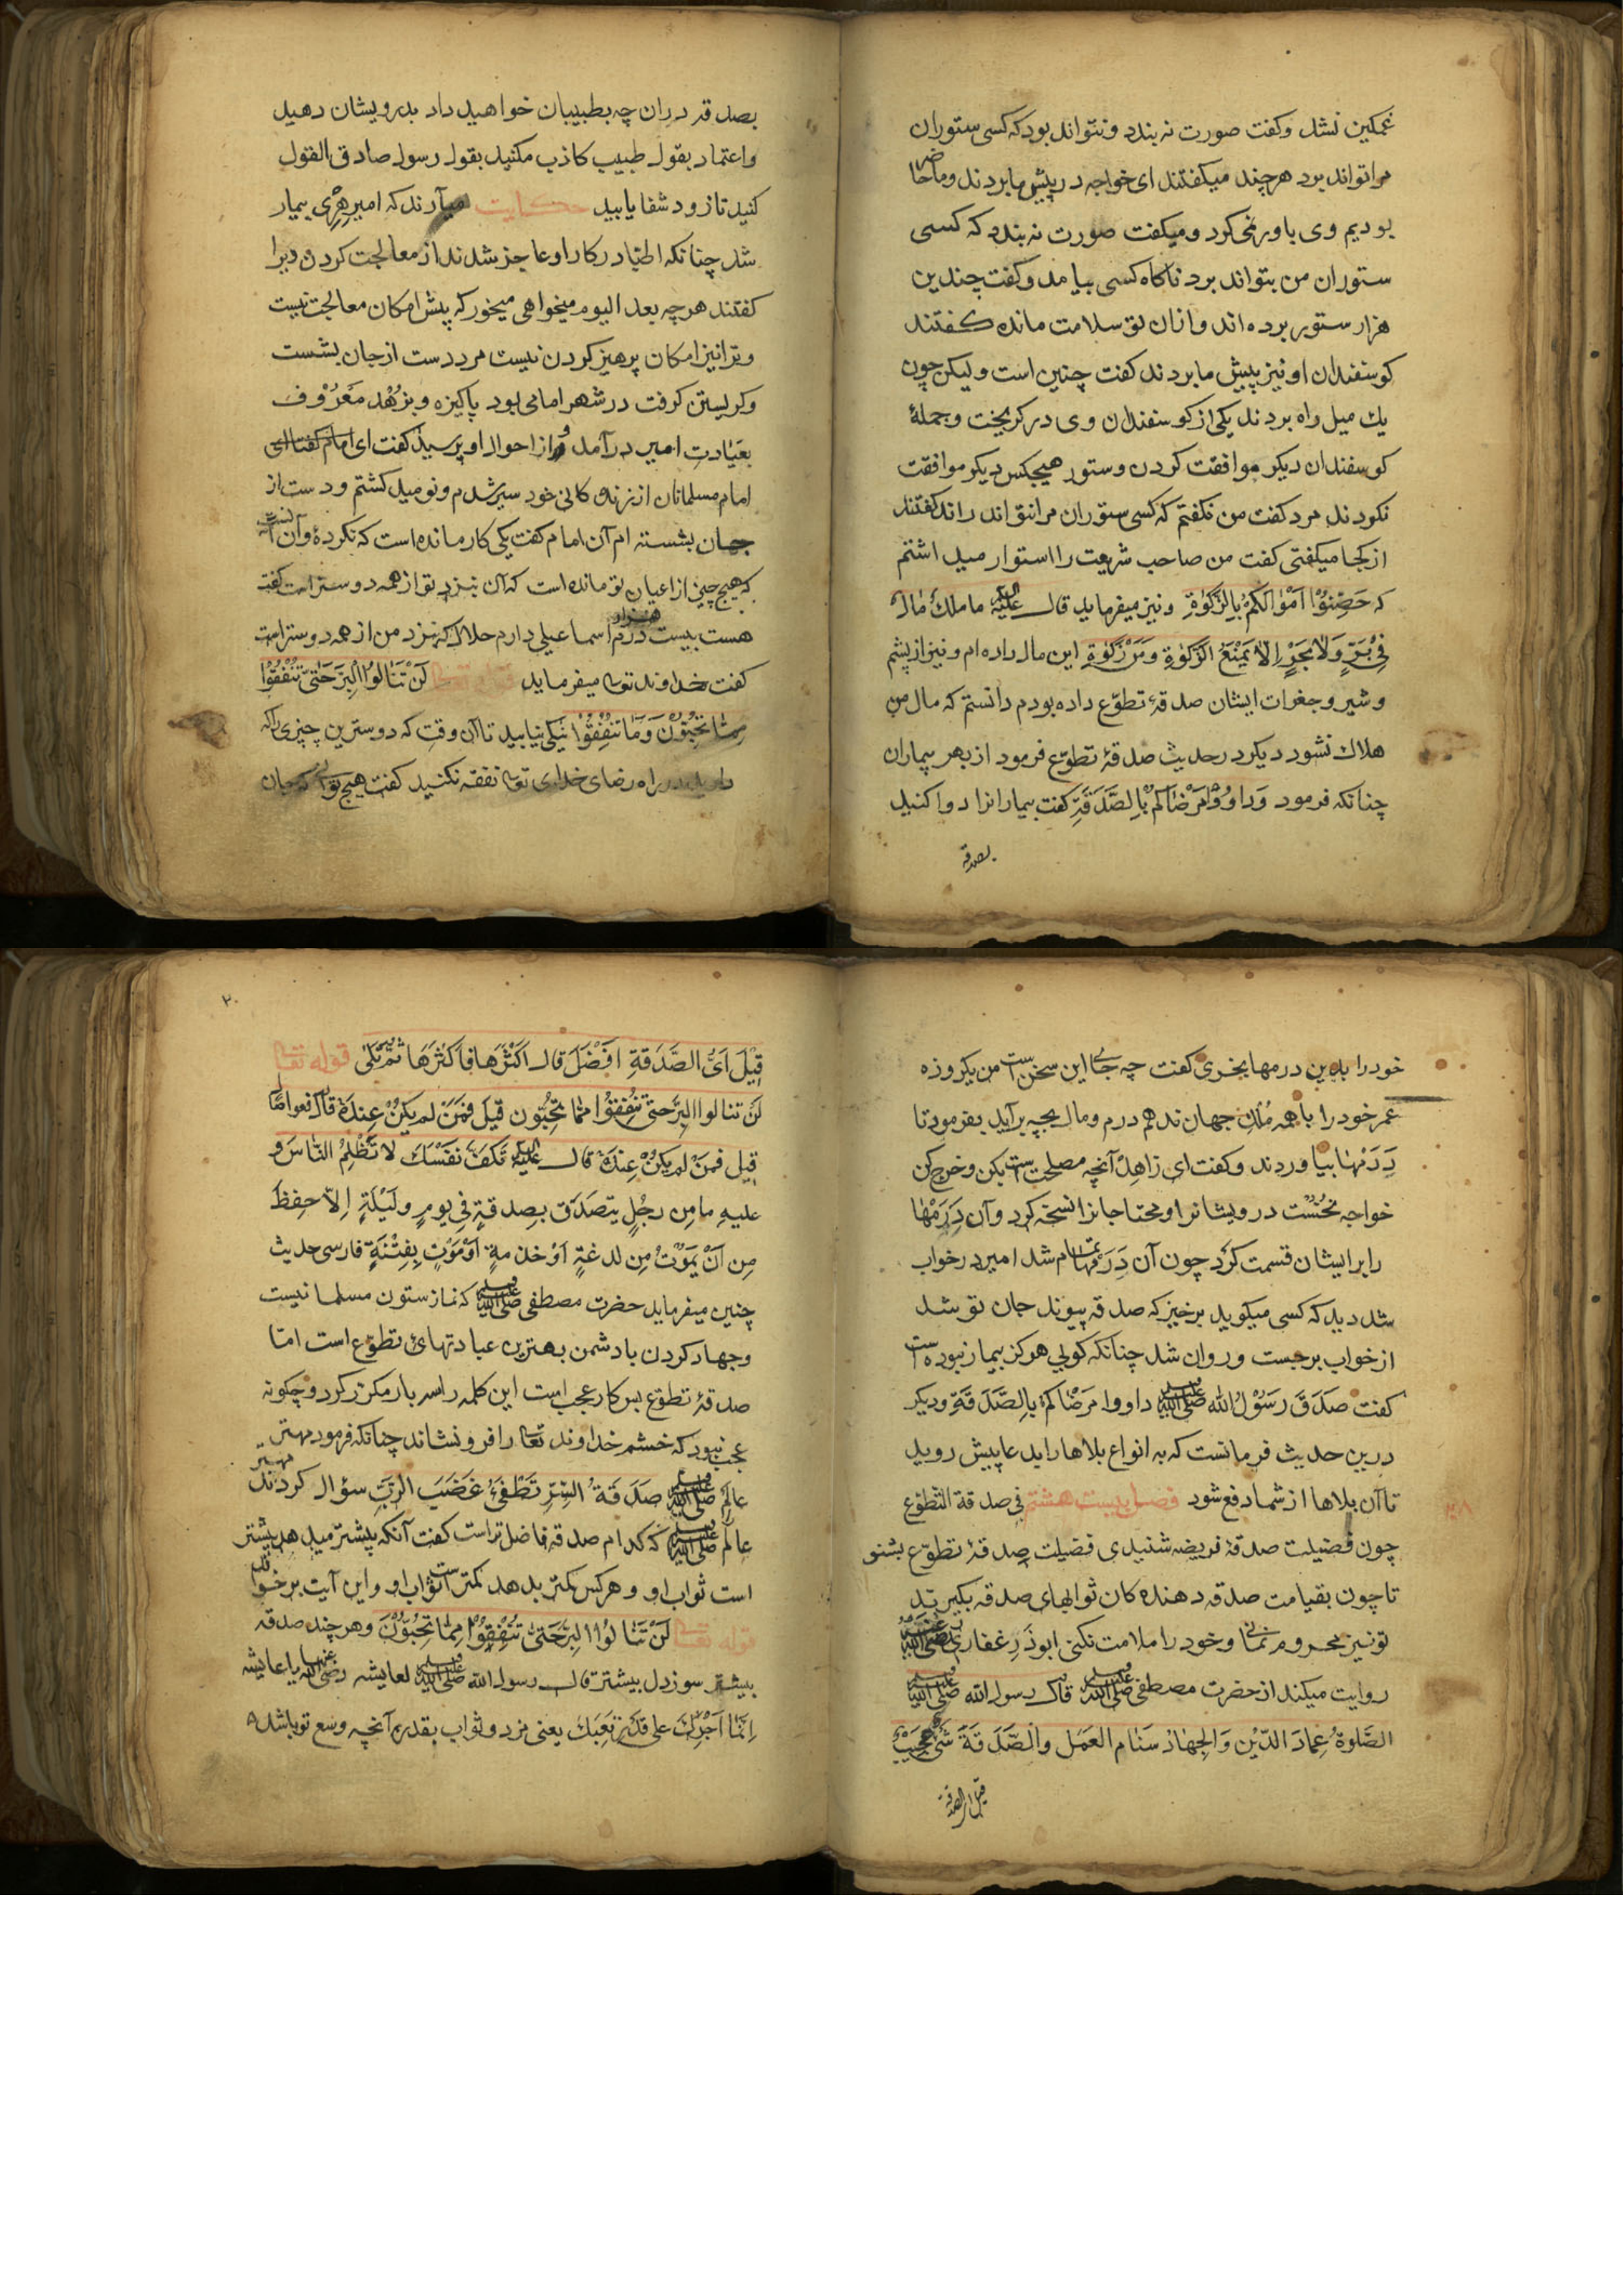 غمکین نشد وکفت صورت نه بندد ونتواند بود که کسی ستوران
مرا تواند برد هرچند میکفتند ای خواجه در پیش ما بردند وما حاضر
بودیم وی باور نمی کرد ومیکفت صورت نه بندد که کسی
ستوران من بتواند برد ناکاه کسی بیامد وکفت چندین
هزار ستور برده اند وازان تو سلامت مانده کفتند
کوسفندان او نیز پیش ما بردند کفت چنین است ولیکن چون
یك میل راه بردند یکی از کوسفندان وی در کریخت وجملهٔ
کوسفندان دیکر موافقت کردن وستور هیچکس دیکر موافقت
نکردند مرد کفت من نکفتم که کسی ستوران مرا نتواند راند کفتند
از کجا میکفتی کفت من صاحب شریعت را استوار میداشتم
که حَصِّنُوْا اَمْوٰالَکُمْ بِالزَّکٰوةِ ونیز میفرماید قال علیه ما ملك مال
فِیْ بَرٍّ وَلَا بَحْرٍ اِلَّا یَمْنَعُ الزَّکٰوةِ ومن زکٰوةِ این مال داده ام ونیز از پشم
وشیر وجغرات ایشان صدقهٔ تطوّع داده بودم دانستم که مال من
هلاك نشود دیکر در حدیث صدقهٔ تطوّع فرمود از بهر بیماران
چنانکه فرمود وَدَاوُوْا مَرْضٰاکُمْ بِالصَّدَقَةِ کفت بیمارانرا دوا کنید
بصدقه
بصدقه دران چه بطبیبان خواهید داد بدرویشان دهید
واعتماد بقول طبیب کاذب مکنید بقول رسول صادق القول
کنید تا زود شفا یابید حکایت میآرند که امیر هِرِیْ بیمار
شد چنانکه اطبّا در کار او عاجز شدند از معالجت کردن ویرا
کفتند هرچه بعد الیوم میخواهی میخور که پیش امکان معالجت نیست
وترا نیز امکان پرهیز کردن نیست مرد دست از جان بشست
وکریستن کرفت در شهر امامی بود پاکیزه وبزُهْد مَعْرُوْف
بعیٰادتِ امیر در آمد واز احوال او پرسید کفت ای امام
امام مسلمانان از زنده کانی خود سیر شدم ونومید کشتم ودست از
جهان بشسته ام آن امام کفت یکی کار مانده است که نکردهٔ وآن آنست
که هیچ چیزی از اعیان تو مانده است که آن نزد تو از همه دوستر است کفت
هست بیست هزار درم اسماعیلی دارم حلال که نزد من از همه دوستر است
کفت خداوند تعه میفرماید قوله تعا لَنْ تَنٰالُوا الْبِرَّ حَتّٰی تُنْفِقُوْا
مِمّٰا تُحِبُّوْنَ وَمٰا تُنْفِقُوْا نیکی نیابید تا آن وقت که دوسترین چیزی را که
دارید در راه رضای خدای تعه نفقه نکنید کفت هیچ توانی که جان
خود را بدین درمها بخری کفت چه جای این سخن است من یکروزه
عمر خود را با همه مُلكِ جهان ندهم درم ومال بچه برآید بفرمود تا
دِرَمْهٰا بیاوردند وکفت ای زاهِدْ آنچه مصلحت است بکن وخرج کن
خواجه نخُسْت درویشانرا ومحتاجانرا نسخه کرد وآن دِرَمْهٰا
را بر ایشان قسمت کرد چون آن دِرَمْهٰا تمام شد امیر در خواب
شد دید که کسی میکوید برخیز که صدقه پیوند جان تو شد
از خواب برجست وروان شد چنانکه کویی هرکز بیمار نبوده است
کفت صَدَقَ رَسُوْلُ الله صلى الله عليه وسلم داووا مَرْضٰاکُمْ بِالصَّدَقَةِ ودیکر
درین حدیث فرمانست که به انواع بلاها را بدعا پیش روید
تا آن بلاها از شما دفع شود فصل بیست هشتم فی صدقة التطوّع
چون فضیلت صدقهٔ فریضه شنیدی فضیلت صدقهٔ تطوّع بشنو
تا چون بقیامت صدقه دهنده کان ثوابهای صدقه بکیرند
تو نیز محروم نمانی وخود را ملامت نکنی ابوذَرِ غفاری رضی الله عنه
روایت میکند از حضرت مصطفی صلى الله عليه وسلم قال رسول الله صلى الله عليه وسلم
الصَّلوةُ عِمادَ الدّیْن وَالجِهٰاد سَنٰام العَمَل والصَّدَقَةَ شَیْ عَجِیْبْ
قیل ای الصدقة
۲۰
قِیْلَ اَیُّ الصَّدَقَةِ اَفْضَلَ قال اَکْثَرَهٰا فاَکْثَرَهٰا ثمّ تَلیٰ قوله تعا
لَنْ تنالوا البِرَّ حتیّٰ تُنْفِقوْا ممّا تُحِبُّون قیلَ فمَنْ لم یکنْ عِندَهٗ قال
قیل فمنْ لم یکنْ عِندَهٗ قال علیه تَکفَّ نفْسَكَ لا تَظْلِمُ النّاسَ و
علیهِ ما مِن رجُلٍ یَتصَدَّق بصِدقةٍ فِی یومٍ ولَیْلَةٍ اِلّا حِفِظَ
مِن اَنْ یَمَوْتُ مِن لدغةٍ اَوْ اَوْ مَوْتٍ بِفِتْنَةٍ فارسی حدیث
چنین میفرماید حضرت مصطفی صلى الله عليه وسلم که نماز ستون مسلمانیست
وجهاد کردن با دشمن بهترین عبادتهائ تطوّع است امّا
صدقهٔ تطوّع بس کار عجب است این کلمه را سه بار مکرّر کرد وچکونه
عجب نبود که خشم خداوند تعا را فرو نشاند چنانکه فرمود مهتر
عالم صلى الله عليه وسلم صَدَقةُ السِّرّ تُطْفِئُ غَضَبَ الرَّبِّ سؤال کردند مهتر
عالم صلى الله عليه وسلم که کدام صدقه فاضل تر است کفت آنکه پیشتر میدهد بیشتر
است ثواب او وهرکس کمتر بدهد کمتر است ثواب او واین آیت بر خواند
قوله تعا لَنْ تَنٰالُوا الْبِرَّ حَتّٰی تُنْفِقُوْا مِمّٰا تُحِبُّوْنَ وهرچند صدقه
بیشتر سوز دل بیشتر قال رسول الله صلى الله عليه وسلم لعایشه رضی الله عنها یا عایشه
اِنَّمٰا اَجْرُكَ علی قَدْرِ تَعَبَكَ یعنی مزد وثواب بقدر آنچه وسع تو باشد